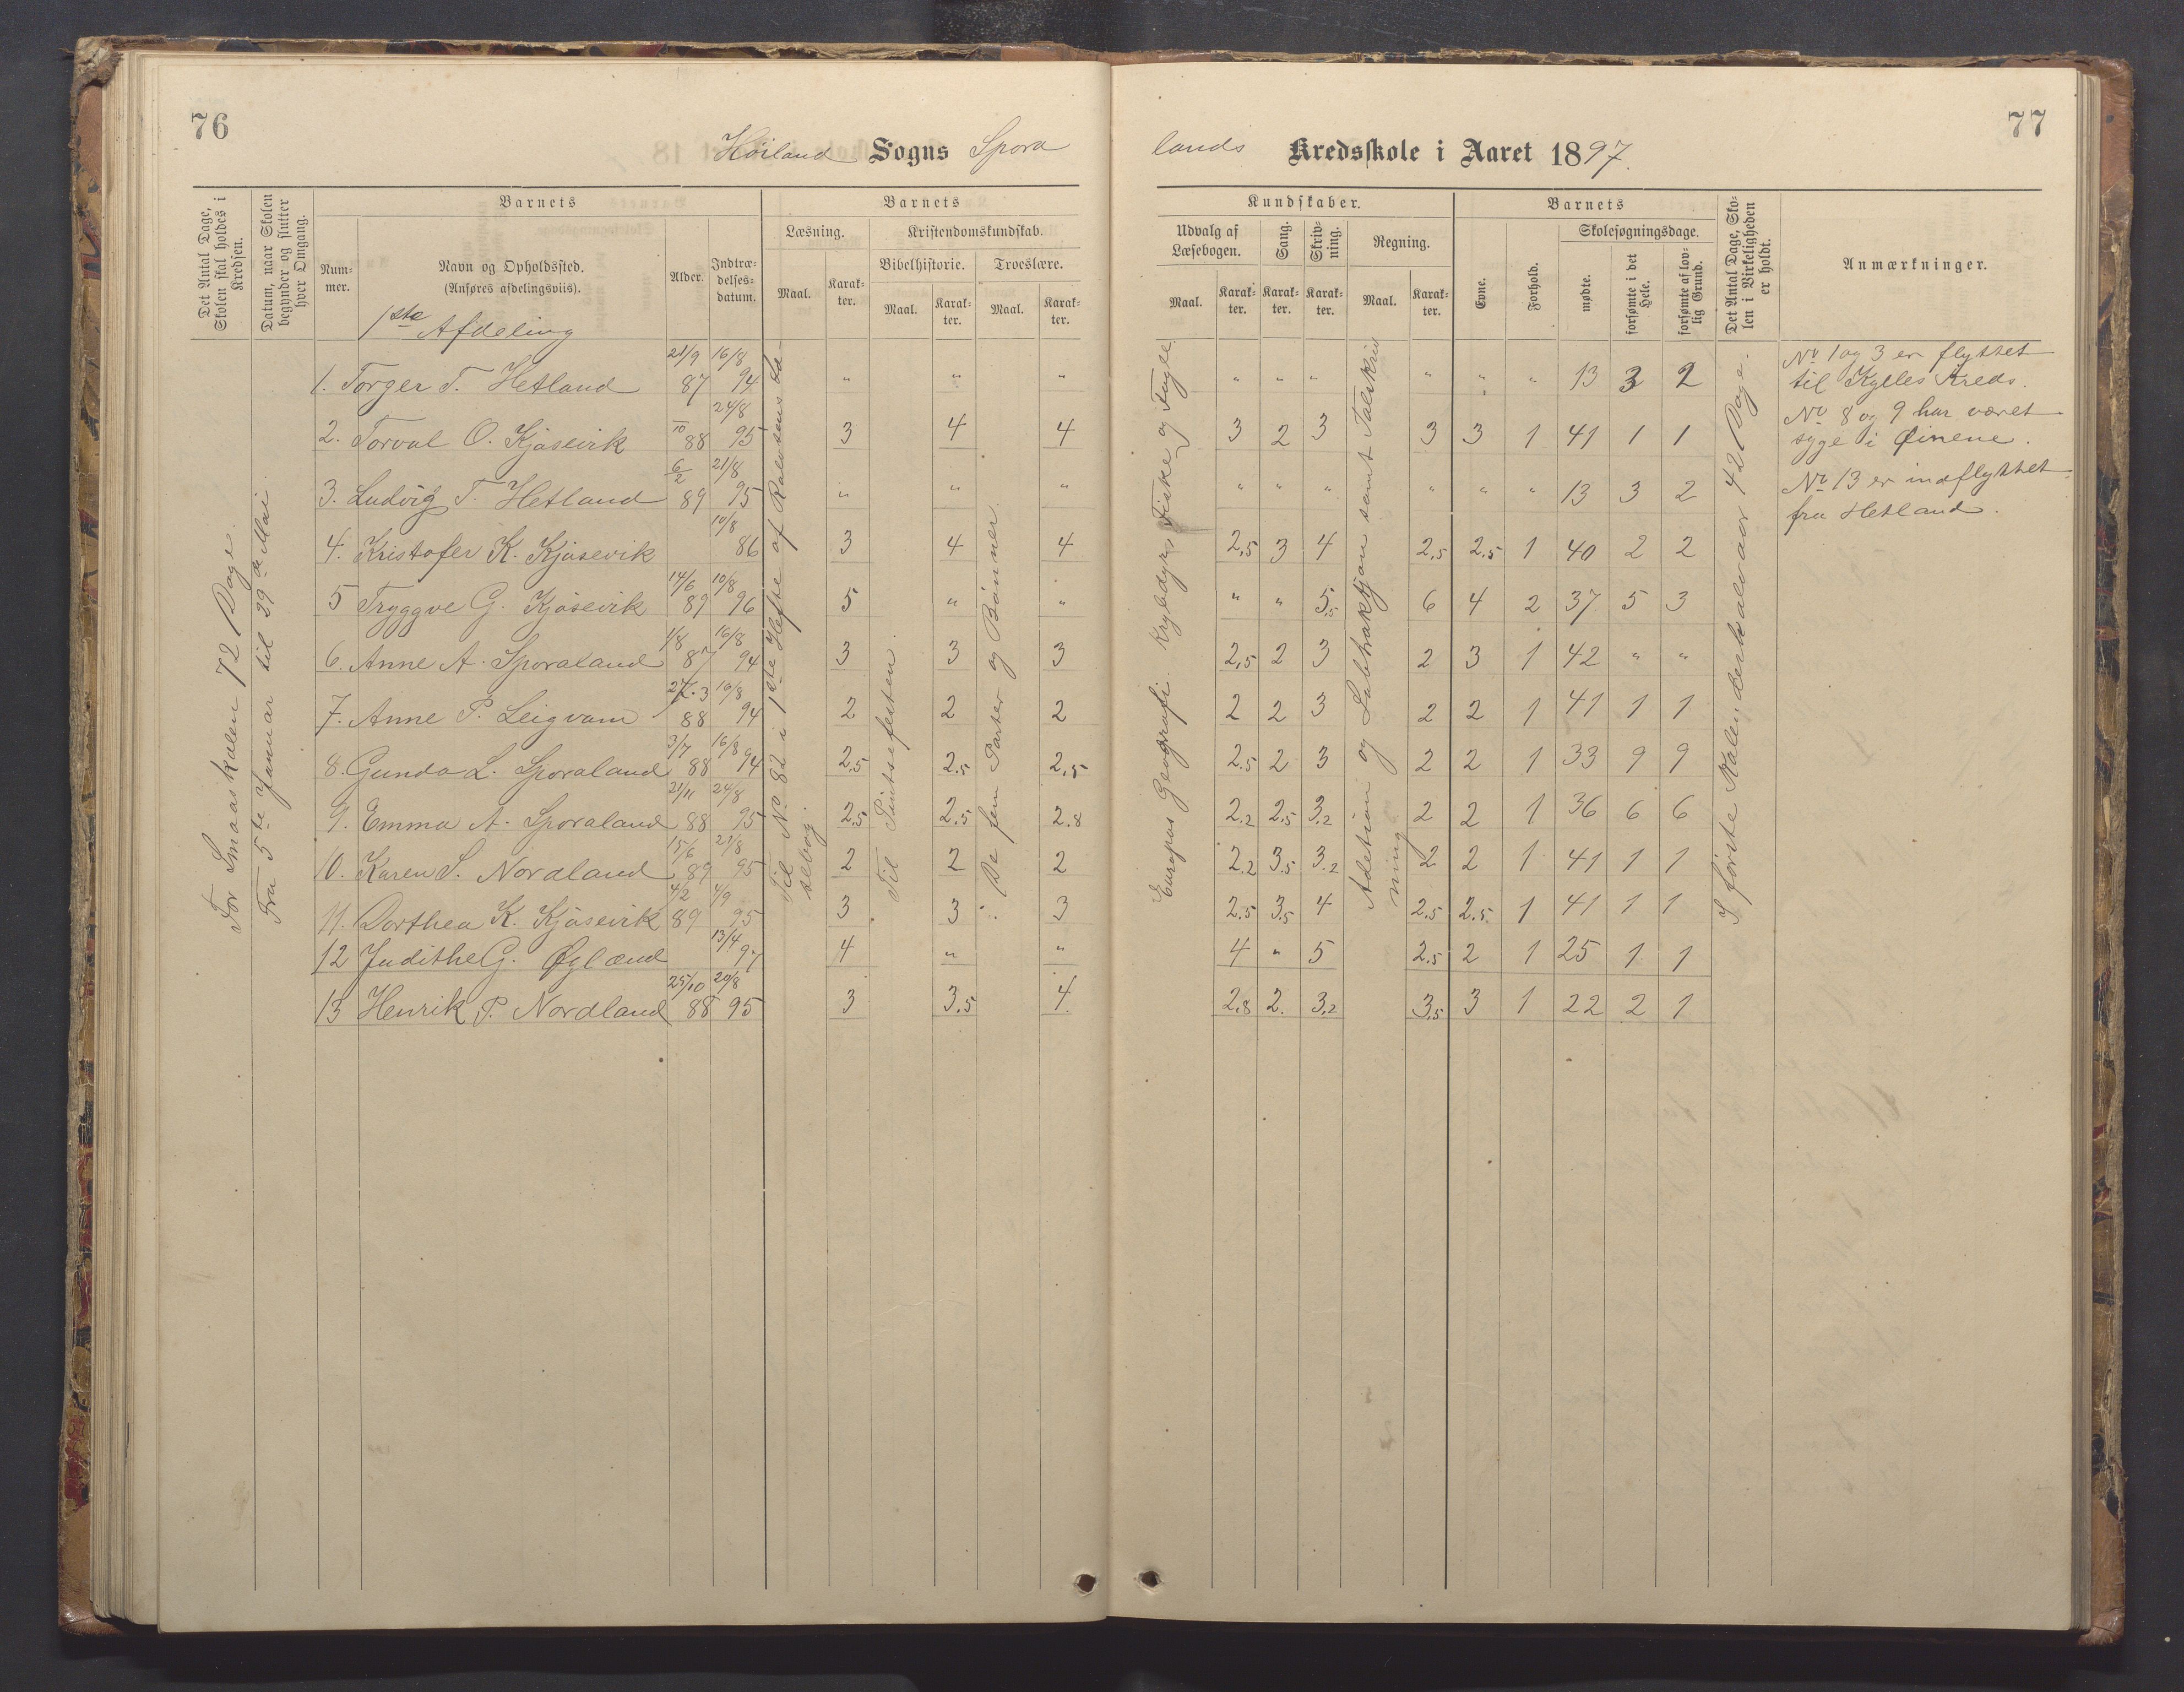 76
Höiland Sogns Spora
Det Antal Dage, Skolen skal holdes i Kredsen.
Datum, naar Skolen begynder og slutter hver Omgang.
Barnets
Num-mer.
Navn og Opholdssted.
(Anføres afdelingsviis).
Alder.
Indtræ-delses-datum.
Barnets
Læsning.
Kristendomskundskab.
Bibelhistorie.
Troeslære.
Maal.
Karak-ter.
Maal.
Karak-ter.
Maal.
Karak-ter.
1ste Afdeling
For Smaaskolen 72 Dage.
Fra 5te Januar til 29de Mai.
Til No 82 i 1ste Hefte af Rolvsens Læ-
sebog.
Til Pintsefesten.
De fem Parter og Bönner.
1. Torger T. Hetland 21/9 87 16/8 94 " " "
2. Torval O. Kjosevik /10 88 24/8 95 3 4 4
3. Ludvig T. Hetland 6/2 89 21/8 95 " " "
4. Kristofer K. Kjosevik 10/8 86 3 4 4
5 Tryggve G. Kjosevik 14/6 89 10/8 96 5 " "
6. Anne A. Sporaland 1/8 87 16/8 94 3 3 3
7. Anne P. Leigvam 88 16/8 94 2 2 2
8. Gunda L. Sporaland 3/7 88 16/8 94 2.5 2.5 2.5
9. Emma A. Sporaland 21/11 88 24/8 95 2.5 2.5 2.8
10. Karen S. Nordland 15/6 89 21/8 95 2 2 2
11. Dorthea K. Kjosevik 4/2 89 4/9 95 3 3 3
12 Judithe G. Øglænd 13/4 97 4 " "
13 Henrik P. Nordland 25/10 88 20/8 95 3 3.5 4.
77
lands Kredsskole i Aaret 1897.
Kundskaber.
Udvalg af Læsebogen.
Sang.
Skriv-ning.
Regning.
Maal.
Karak-ter.
Karak-ter.
Karak-ter.
Maal.
Karak-ter.
Barnets
Evne.
Forhold.
Skolesøgningsdage.
mødte.
forsømte i det Hele.
forsømte af lov-lig Grund.
Det Antal Dage, Sko-len i Virkeligheden er holdt.
Anmærkninger.
Europas Geografi. Krybdyr, Fiske og Fugle.
Adetion og Subtraktjon samt Talskriv
ning
I förste Kalenderhalvaar 42 Dage.
" " " " " " 13 3 2
3 2 3 3 3 1 41 1 1
" " " " " " 13 3 2
2,5 3 4 2,5 2.5 1 40 2 2
" " 5.5 6 4 2 37 5 3
2,5 2 3 2 3 1 42 " "
2 2 3 2 2 1 41 1 1
2.5 2 3 2 2 1 33 9 9
2.2 2.5 3.2 2 2 1 36 6 6
2.2 3.5 3.2 2 2 1 41 1 1
2.5 3.5 4 2.5 2.5 1 41 1 1
4 " 5 2.5 2 1 25 1 1
2.8 2. 3.2 3.5 3 1 22 2 1
No 1 og 3 er flyttet
til Kylles Kreds.
No 8 og 9 har været
syge i Øinene.
No 13 er indflyttet
fra Hetland.